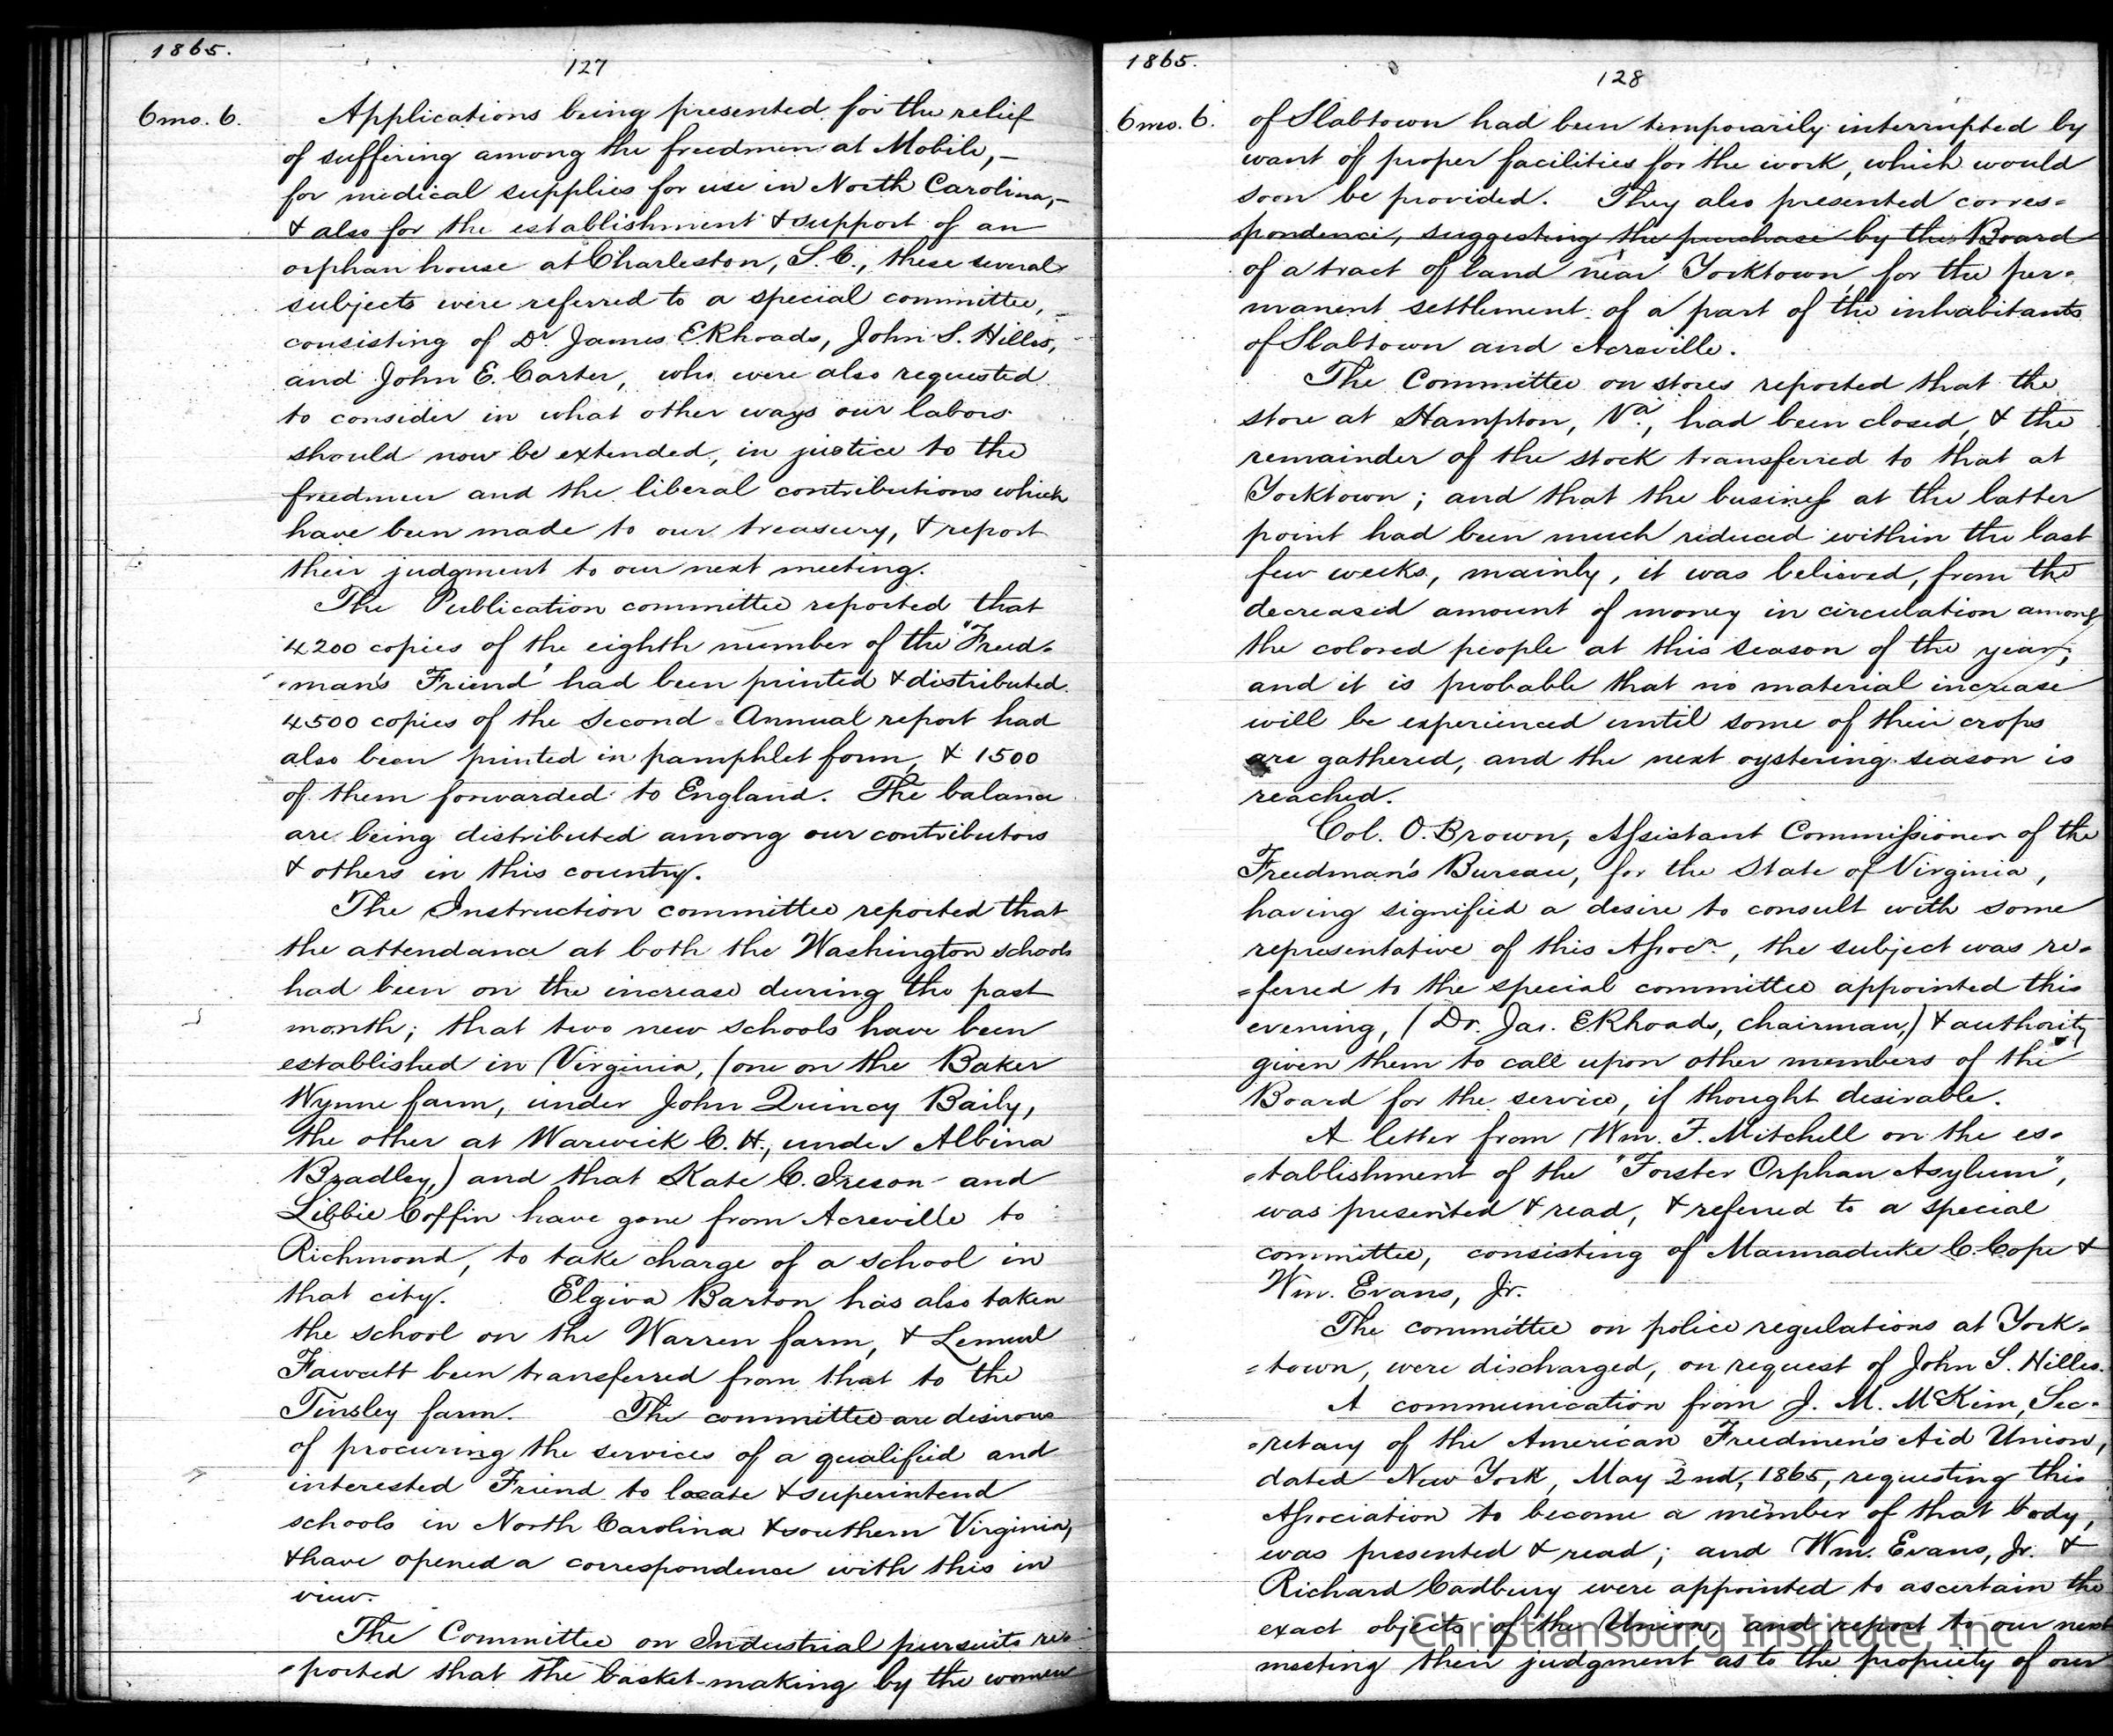 1865.
127
6mo. 6. Applications being presented for the relief
of suffering among the freedmen at Mobile,-
for medical supplies for use in North Carolina,-
& also for the establishment & support of an
orphan house at Charleston, S.C., these several
subjects were referred to a special committee,-
consisting of Dr. James E Rhoads, John S. Hilles,
and John E. Carter, who were also requested
to consider in what other ways our labors
should now be extended, in justice to the
freedmen and the liberal contributions which
have been made to our treasury, & report
their judgment to our next meeting.
The Publication committee reported that
4200 copies of the eighth number of the "Freed-
-man's Friend" had been printed & distributed.
4500 copies of the Second Annual report had
also been printed in pamphlet form, & 1500
of them forwarded to England. The balance
are being distributed among our contributors
& others in this country.
The Instruction committee reported that
the attendance at both the Washington schools
had been on the increase during the past
month; that two new schools have been
established in Virginia, (one on the Baker
Wynne farm, under John Quincy Baily,
the other at Warwick C.H., under Albina
Bradley,) and that Kate C. Ireson and
Libbie Coffin have gone from Acreville to
Richmond, to take charge of a school in
that city. Elgiva Barton has also taken
the school on the Warren farm, & Lemuel
Fawcett been transferred from that to the
Tinsley farm. The committee are desirous
of procuring the services of a qualified and
interested Friend to locate & superintend
schools in North Carolina & southern Virginia,
& have opened a correspondence with this in
view.
The Committee on Industrial pursuits re-
-ported that the basket-making by the women
1865.
128
6mo. 6. of Slabtown had been temporarily interrupted by
want of proper facilities for the work, which would
soon be provided. They also presented corres-
pondence, suggesting the purchase by this Board
of a tract of land near Yorktown, for the per-
manent settlement of a part of the inhabitants
of Slabtown and Acreville.
The Committee on stores reported that the
store at Hampton, Va., had been closed, & the
remainder of the stock transferred to that at
Yorktown; and that the business at the latter
point had been much reduced within the last
few weeks, mainly, it was believed, from the
decreased amount of money in circulation among
the colored people at this season of the year;
and it is probable that no material increase
will be experienced until some of their crops
are gathered, and the next oystering season is
reached.
Col. O. Brown, Assistant Commissioner of the
Freedman's Bureau, for the State of Virginia,
having signified a desire to consult with some
representative of this Assocn., the subject was re-
-ferred to the special committee appointed this
evening, (Dr. Jas. E Rhoads, chairman,) & authority
given them to call upon other members of the
Board for the service, if thought desirable.
A letter from Wm. F. Mitchell on the es-
-tablishment of the "Forster Orphan Asylum",
was presented & read, & referred to a special
committee, consisting of Marmaduke C. Cope &
Wm. Evans, Jr.
The committee on police regulations at York-
-town, were discharged, on request of John S. Hilles.
A communication from J. M. McKim, Sec-
-retary of the American Freedmen's Aid Union,
dated New York, May 2nd, 1865, requesting this
Association to become a member of that body,
was presented & read; and Wm. Evans, Jr. &
Richard Cadbury were appointed to ascertain the
exact objects of the Union, and report to our next
meeting their judgment as to the propriety of our
Christiansburg Institute, Inc